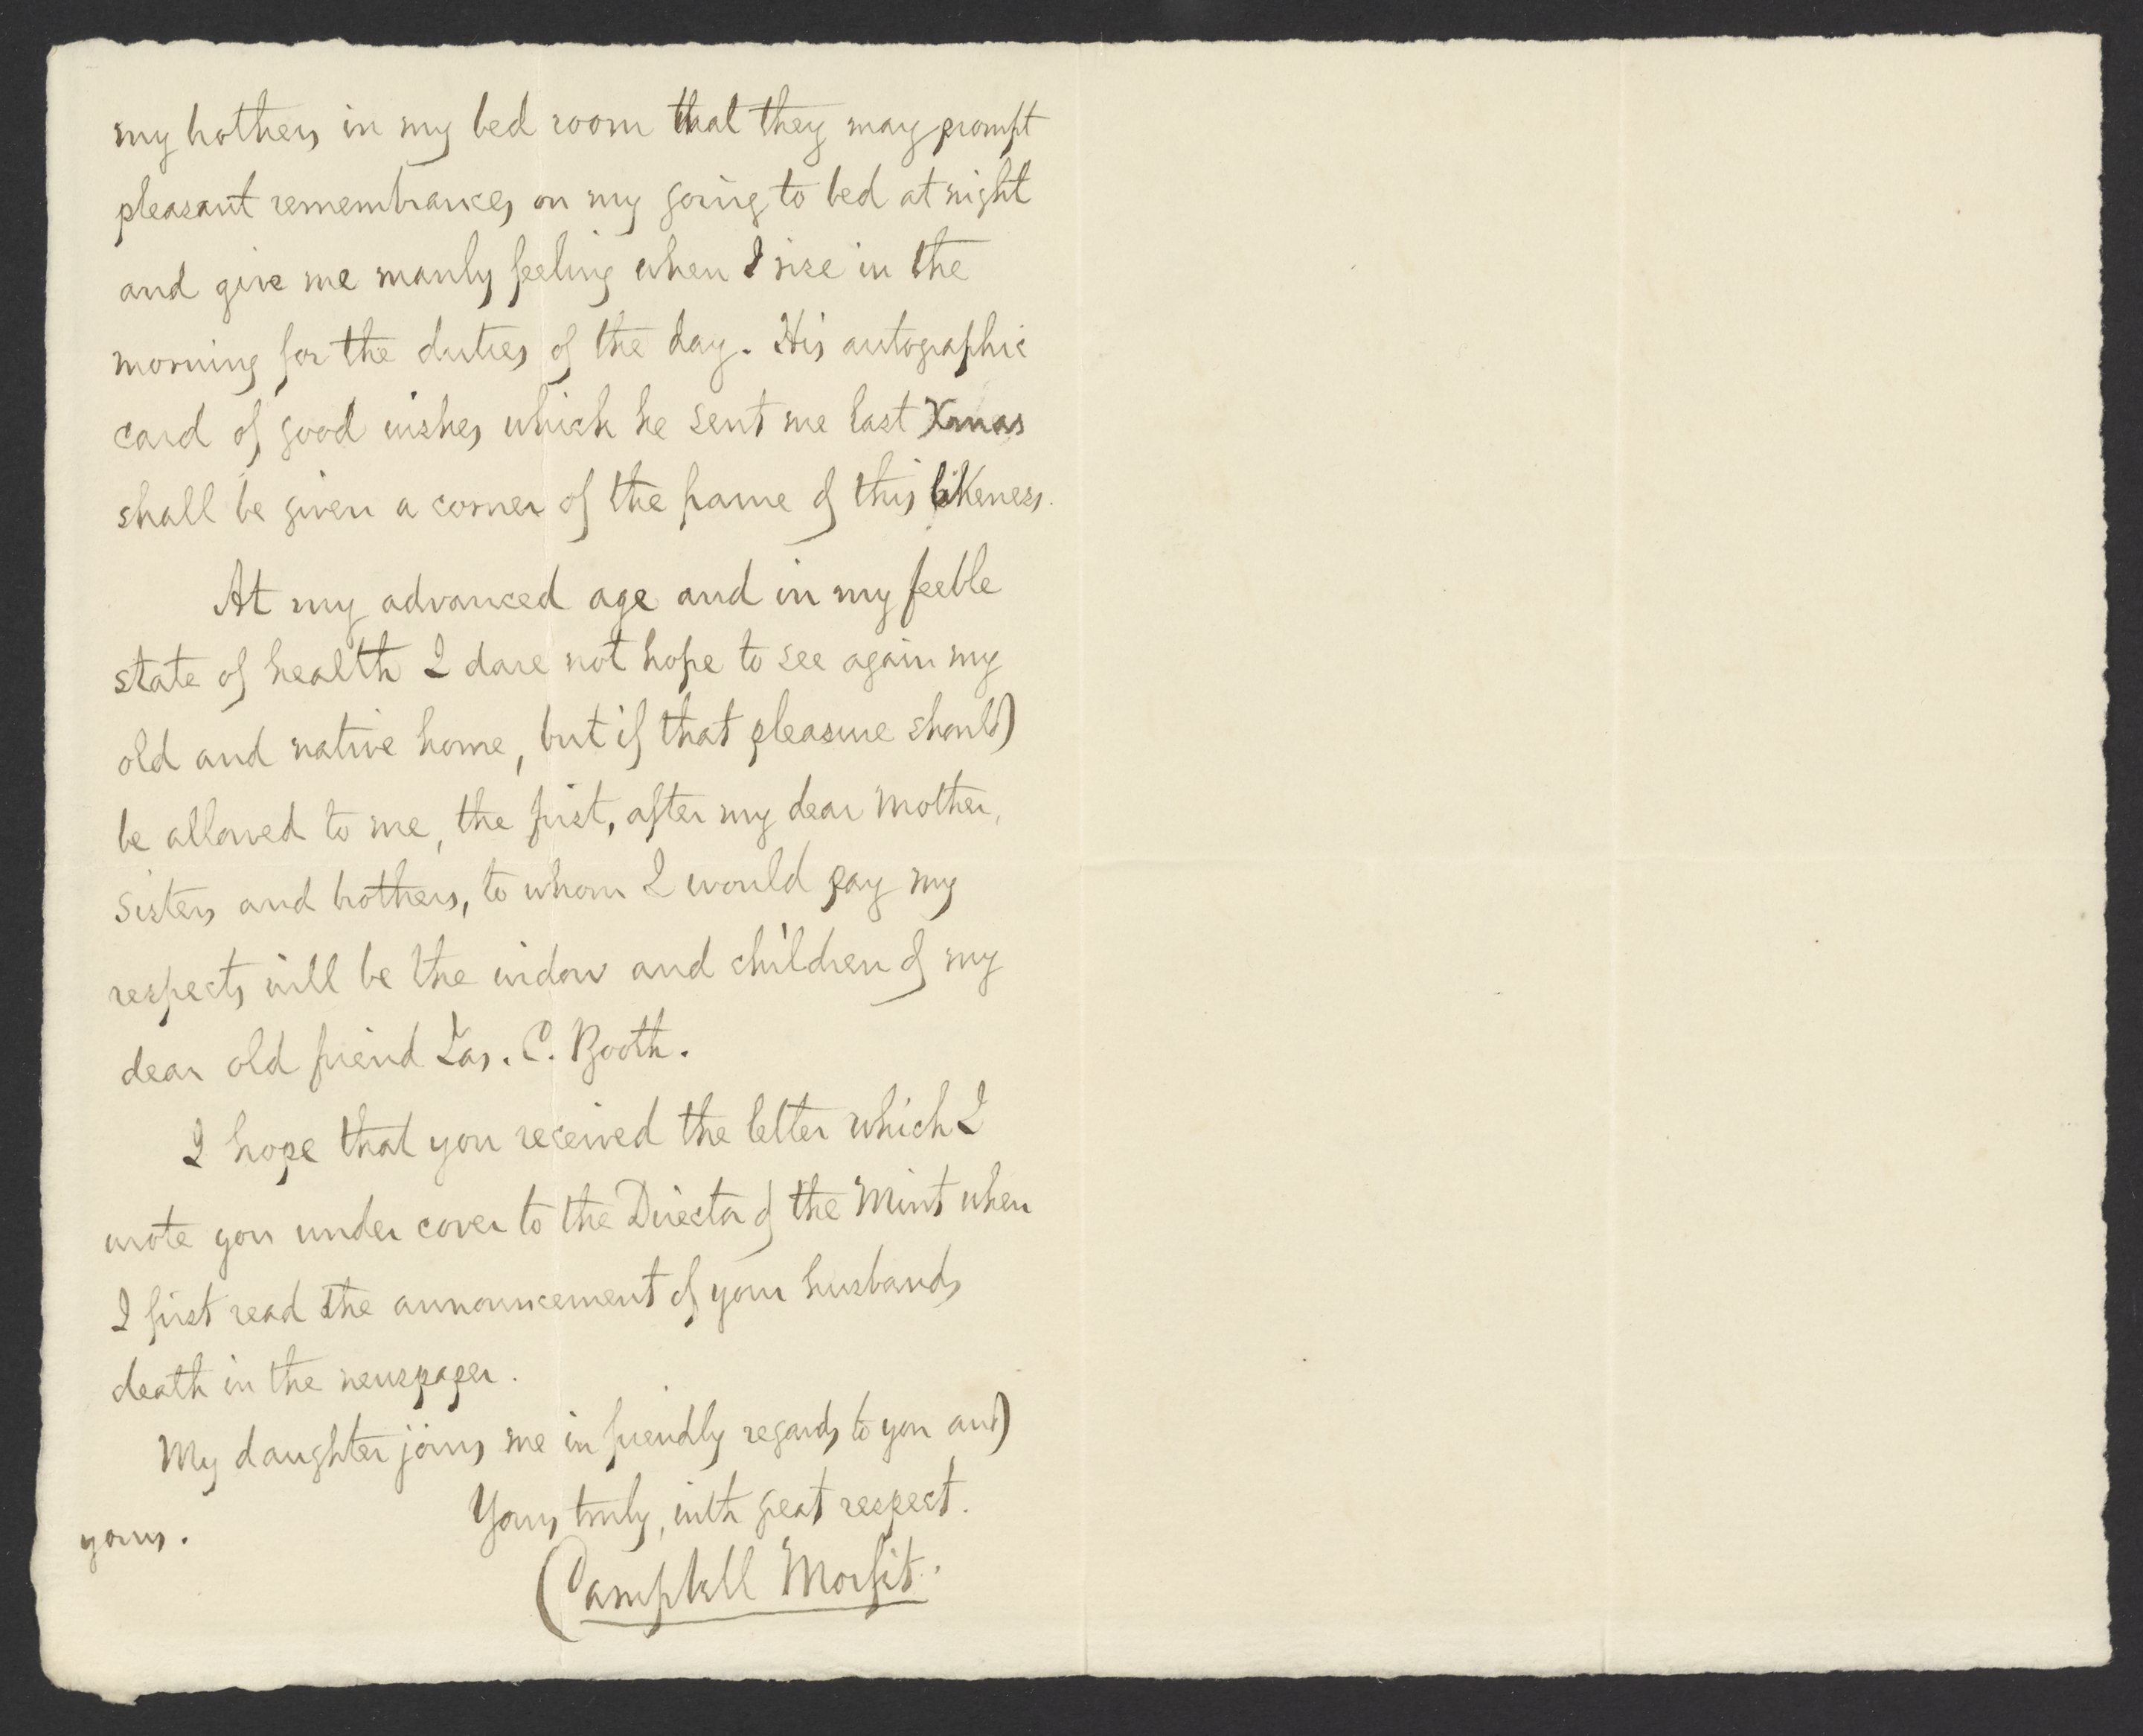 my brothers in my bed room that they may prompt
pleasant remembrances on my going to bed at night
and give me manly feeling when I rise in the
morning for the duties of the day. His autographic
card of good wishes which he sent me last Xmas
shall be given a corner of the frame of this likeness.
At my advanced age and in my feeble
state of health I dare not hope to see again my
old and native home, but if that pleasure should
be allowed to me, the first, after my dear Mother,
sisters and brothers, to whom I would pay my
respects will be the widow and children of my
dear old friend Jas. C. Booth.
I hope that you received the letter which I
wrote you under cover to the Director of the Mint when
I first read the announcement of your husbands
death in the newspaper.
My daughter joins me in friendly regards to you and
yours. Yours truly, with great respect.
Campbell Morfit.